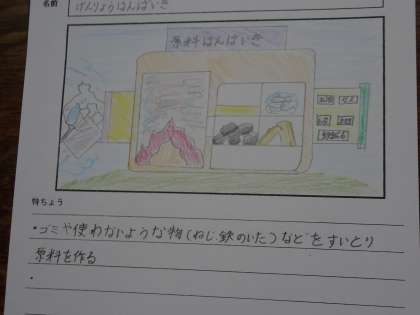 名前
げんりょうはんばいき
原料はんばいき
特ちょう
・ゴミや使わないような物(ねじ、鉄のいた)などをすいとり
原料を作る
・